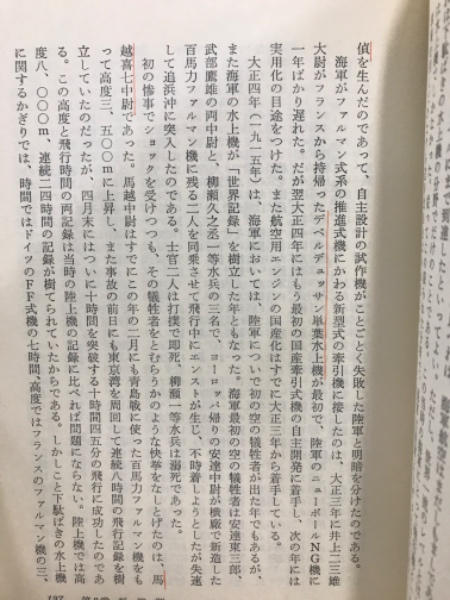 偵を生んだのであって、自主設計の試作機がことごとく失敗した陸軍と明暗を分けたのである。
海軍がファルマン式系の推進式機にかわる新型式の牽引機に接したのは、大正三年に井上二三雄
大尉がフランスから持帰ったデペルデュッサン単葉水上機が最初で、陸軍のニューポールNG機に
一年ばかり遅れた。だが翌大正四年にはもう最初の国産牽引式機の自主開発に着手し、次の年には
実用化の目途をつけた。また航空用エンジンの国産化はすでに大正三年から着手している。
大正四年（一九一五年）は、海軍においては、陸軍について初の空の犠牲者が出た年でもあるが、
また海軍の水上機が「世界記録」を樹立した年ともなった。海軍最初の空の犠牲者は安達東三郎、
武部鷹雄の両中尉と、柳瀬久之丞一等水兵の三名で、ヨーロッパ帰りの安達中尉が横廠で新造した
百馬力ファルマン機に残る二人を同乗させて飛行中にエンストが生じ、不時着しようとしたが失速
して追浜沖に突入したのである。士官二人は打撲で即死、柳瀬一等水兵は溺死であった。
初の惨事でショックを受けつつも、その犠牲者をとむらうかのような快挙をなしとげたのは、馬
越喜七中尉であった。馬越中尉はすでにこの年の二月にも青島戦に使った百馬力ファルマン機をも
って高度三、五〇〇mに上昇し、また事故の前日にも東京湾を周回して連続八時間の飛行記録を樹
立していたのだったが、四月末にはついに十時間を突破する十時間四五分の飛行に成功したのであ
る。この高度と飛行時間の両記録は当時の陸上機の記録に比べれば問題にならない。陸上機では高
度八、〇〇〇m、連続二四時間の記録が樹てられていたからである。しかしこと下駄ばきの水上機
に関するかぎりでは、時間ではドイツのFF式機の七時間、高度ではフランスのファルマン機の三、